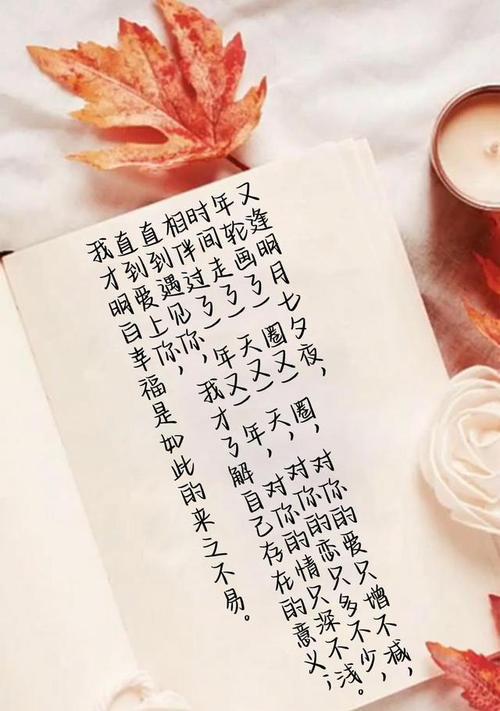 又逢明月七夕夜，
年轮画了一圈又一圈，对你的爱只增不减，
时间走了一天又一天，对你的恋只多不少，
相伴过了一年又一年，对你的情只深不浅。
直到遇见你，我才了解自己存在的意义；
直到爱上你，
我才明白幸福是如此的来之不易。